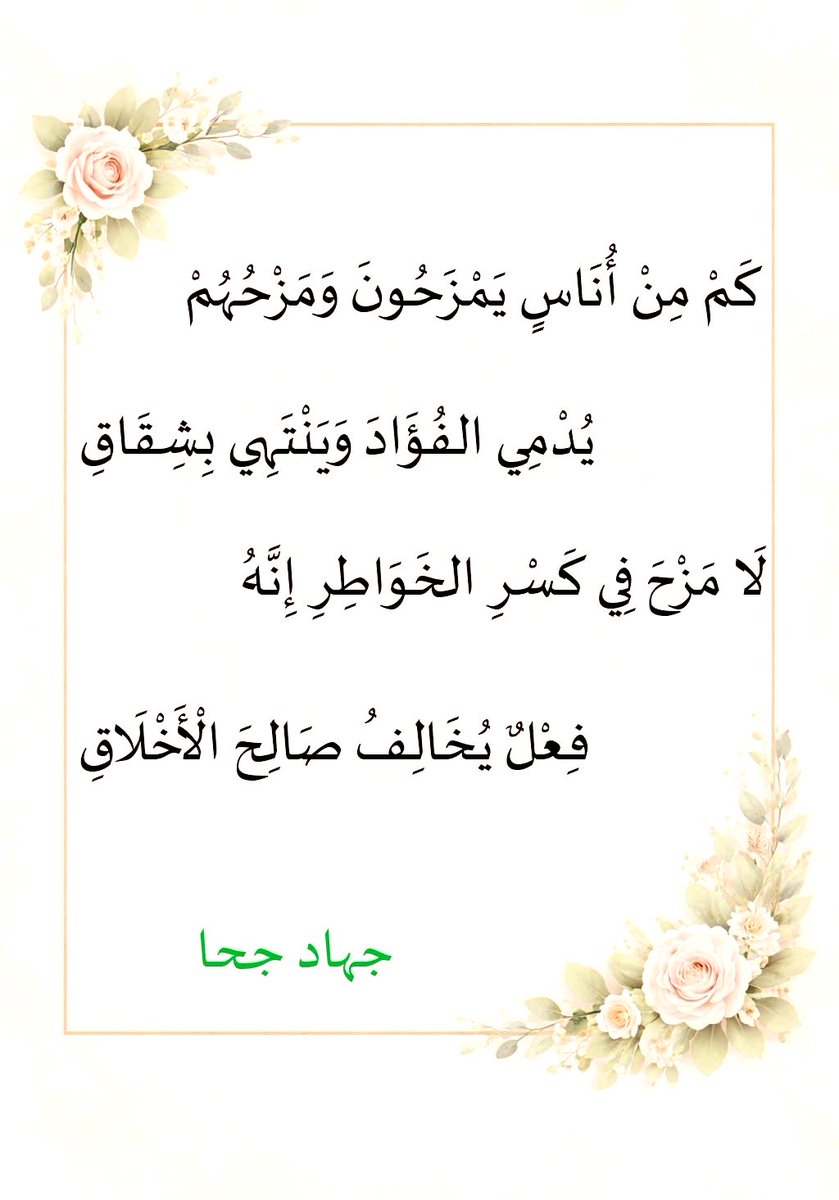 كَمْ مِنْ أُنَاسٍ يَمْزَحُونَ وَمَزْحُهُمْ
يُدْمِي الفُؤَادَ وَيَنْتَهِي بِشِقَاقِ
لَا مَزْحَ فِي كَسْرِ الخَوَاطِرِ إِنَّهُ
فِعْلٌ يُخَالِفُ صَالِحَ الْأَخْلَاقِ
جهاد جحا